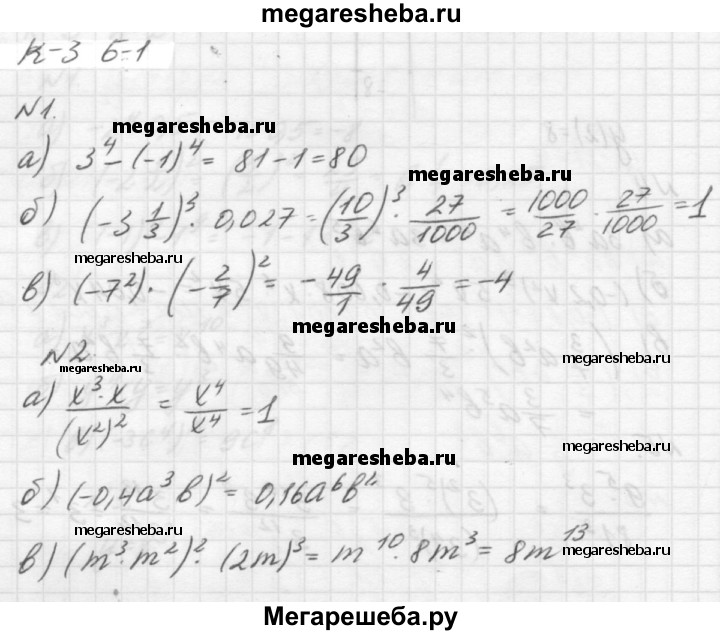 megaresheba.ru
К-3 Б-1
№1.
megaresheba.ru
а) 3⁴ - (-1)⁴ = 81 - 1 = 80
megaresheba.ru
б) (-3 1/3)³ · 0,027 = (10/3)³ · 27/1000 = 1000/27 · 27/1000 = 1
megaresheba.ru
в) (-7²) · (-2/7)² = -49/1 · 4/49 = -4
megaresheba.ru
№2.
megaresheba.ru
megaresheba.ru
а) x³·x/(x²)² = x⁴/x⁴ = 1
megaresheba.ru
megaresheba.ru
б) (-0,4a³b)² = 0,16a⁶b²
megaresheba.ru
в) (m³·m²)² · (2m)³ = m¹⁰ · 8m³ = 8m¹³
megaresheba.ru
Мегарешеба.ру